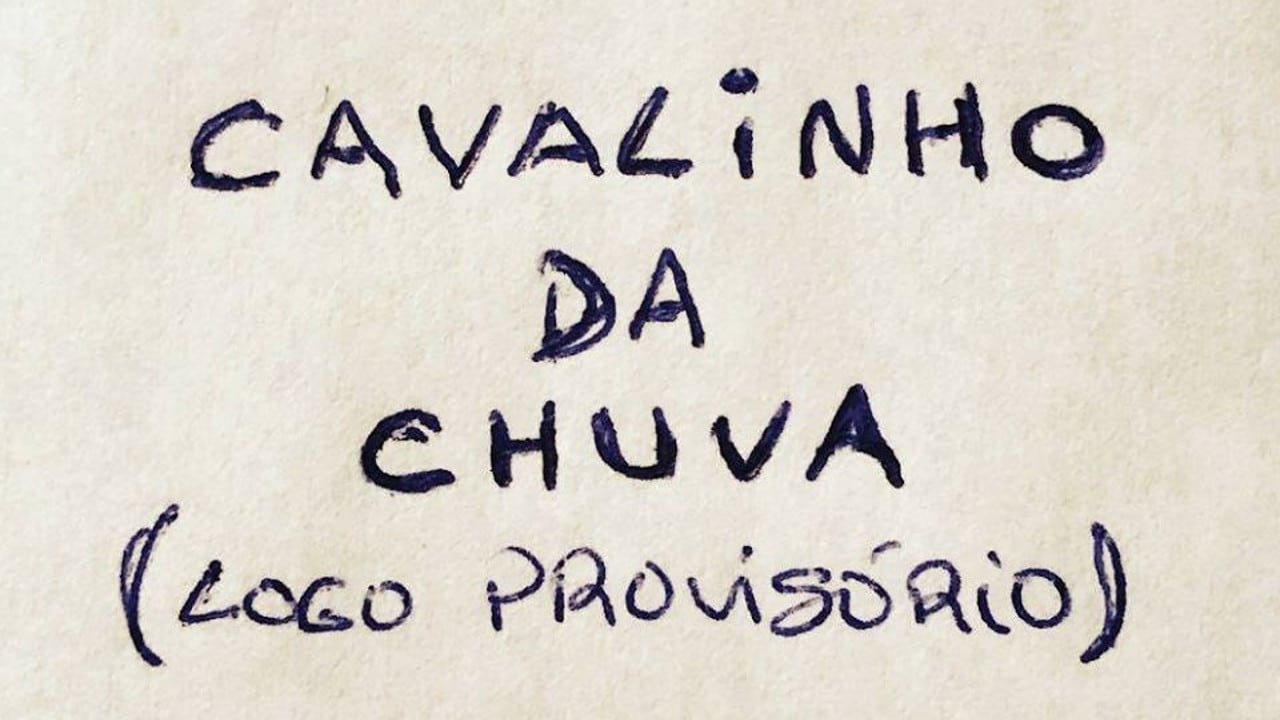 CAVALiNHO
DA
CHUVA
(LOGO PROViSÓRiO)